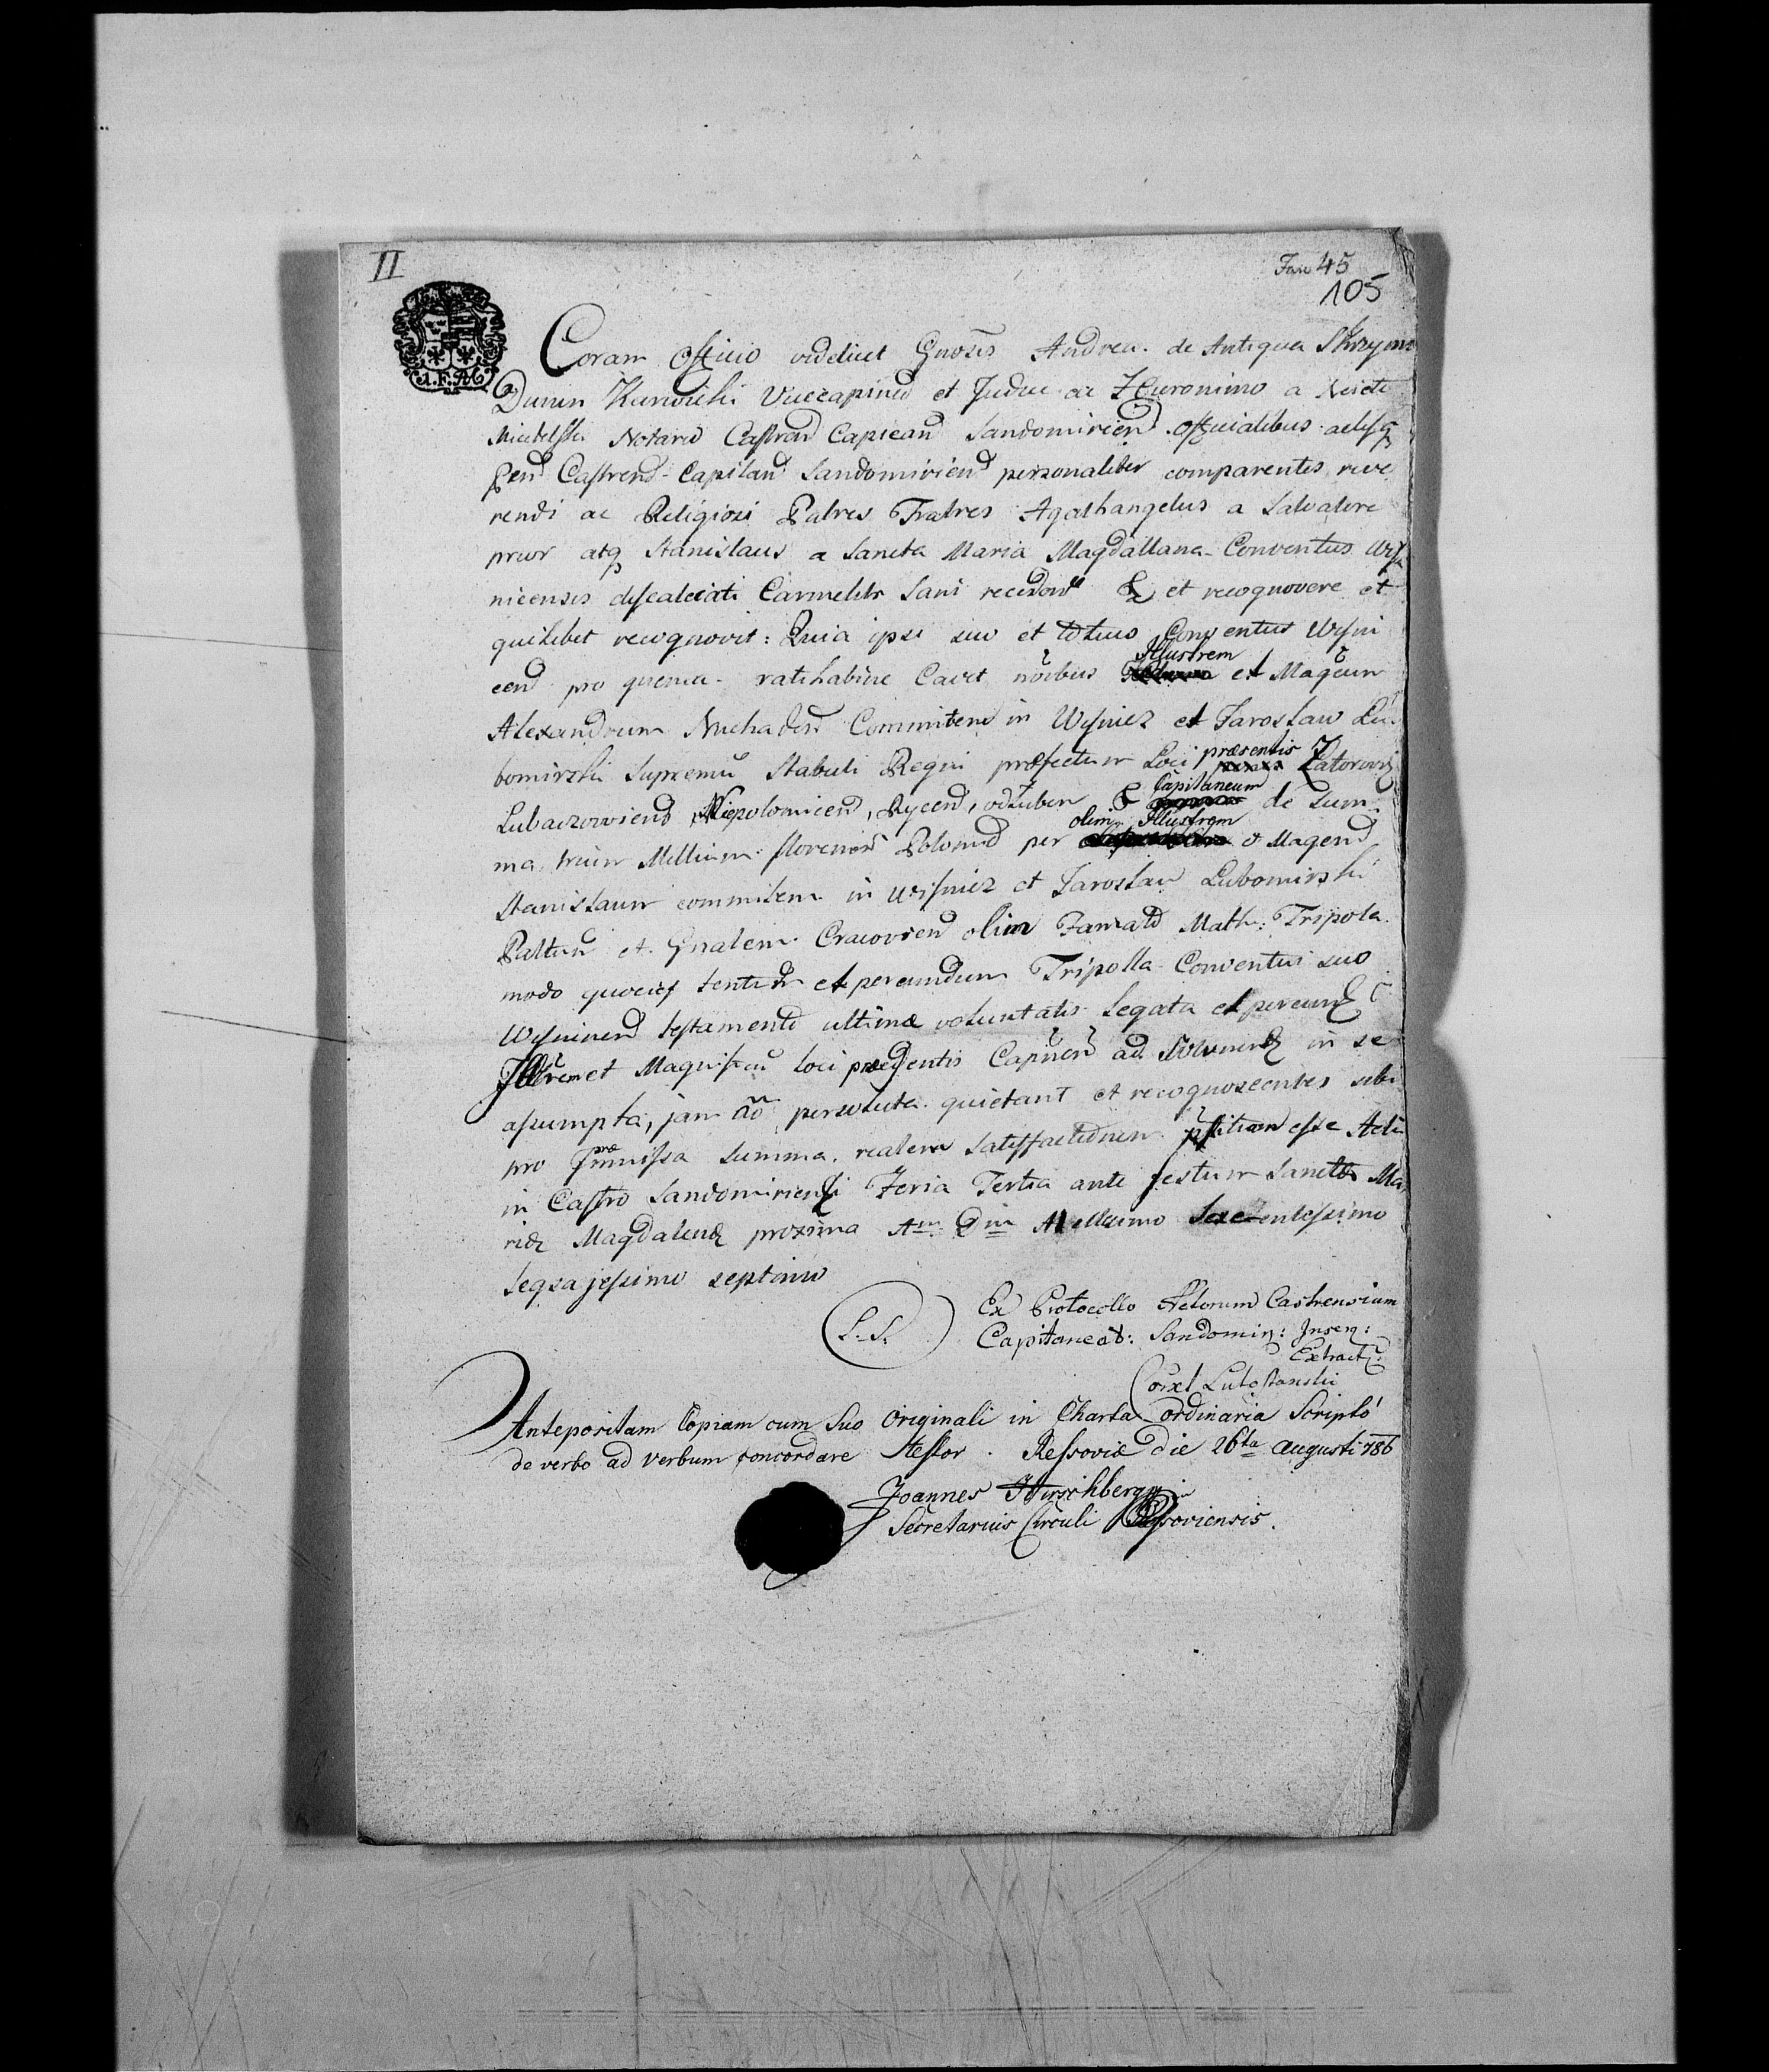 II
Fasc 45
105
I.F.R.
Coram Officio videlicet Gnosis Andrea de Antiqua Skrzynno
Dunin Karwicki Vicecapined et Judice ac Hieronimo a Nieciec
Mierzelski Notario Castren Capitan Sandomirien officialibus actisq
gen Castrend Capitan Sandomiriend personaliter comparentes reve
rendi ac Religiosi Patres Fratres Agathangelus a Salvatore
prior atq Stanislaus a Sancta Maria Magdallana Conventus Wiss
nicensis discalceati Carmelitae Sani recedow &c et recognovere et
quilibet recognovit: Quia ipsi suo et totius Conventus Wisni
cend pro quenia ratihabine Cavet noibus Illustrem et Magcum
Alexandrum Michaelem Commitem in Wisnicz et Jaroslaw Lu
bomirski Supremu Stabuli Regni praefectum Loci praesentis Zatorovi
Lubaczowiend, Niepolomicend, Rycend, &c Capitaneum de Sum
ma trium Millium florenor Polond per olim Illustrem et Magend
Stanislaum commitem in Wisnicz et Jaroslaw Lubomirski
Paltin et Gnalem Cracovien olim Math: Tripola
modo quocuq tentu et per eundem Tripolla Conventui suo
Wisnicend testamento ultima voluntatis Legata et per eund
Illtrem et Magnificu loci praesentis Capnen ad Solvend in se
assumpta, jam persoluta quietant et recognoscentes sibi
pro praemissa summa realem satisfactionem pstitam esse Acta
in Castro Sandomiriensi Feria Tertia ante festum Sanctae Ma
riae Magdalenae proxima Ann Dni Millesimo Sexcentesimo
Seqsagesimo septimo
L.S.
Ex Protocollo Actorum Castrensium
Capitaneat: Sandomir: Inser:
Extract:
Corxt Lutostanski
Antepositam Copiam cum Suo Originali in Charta ordinaria Scripto
de verbo ad verbum concordare Testor. Ressoviae die 26ta Augusti 786
Joannes Hirschberg
Secretarius Circuli Ressoviensis.